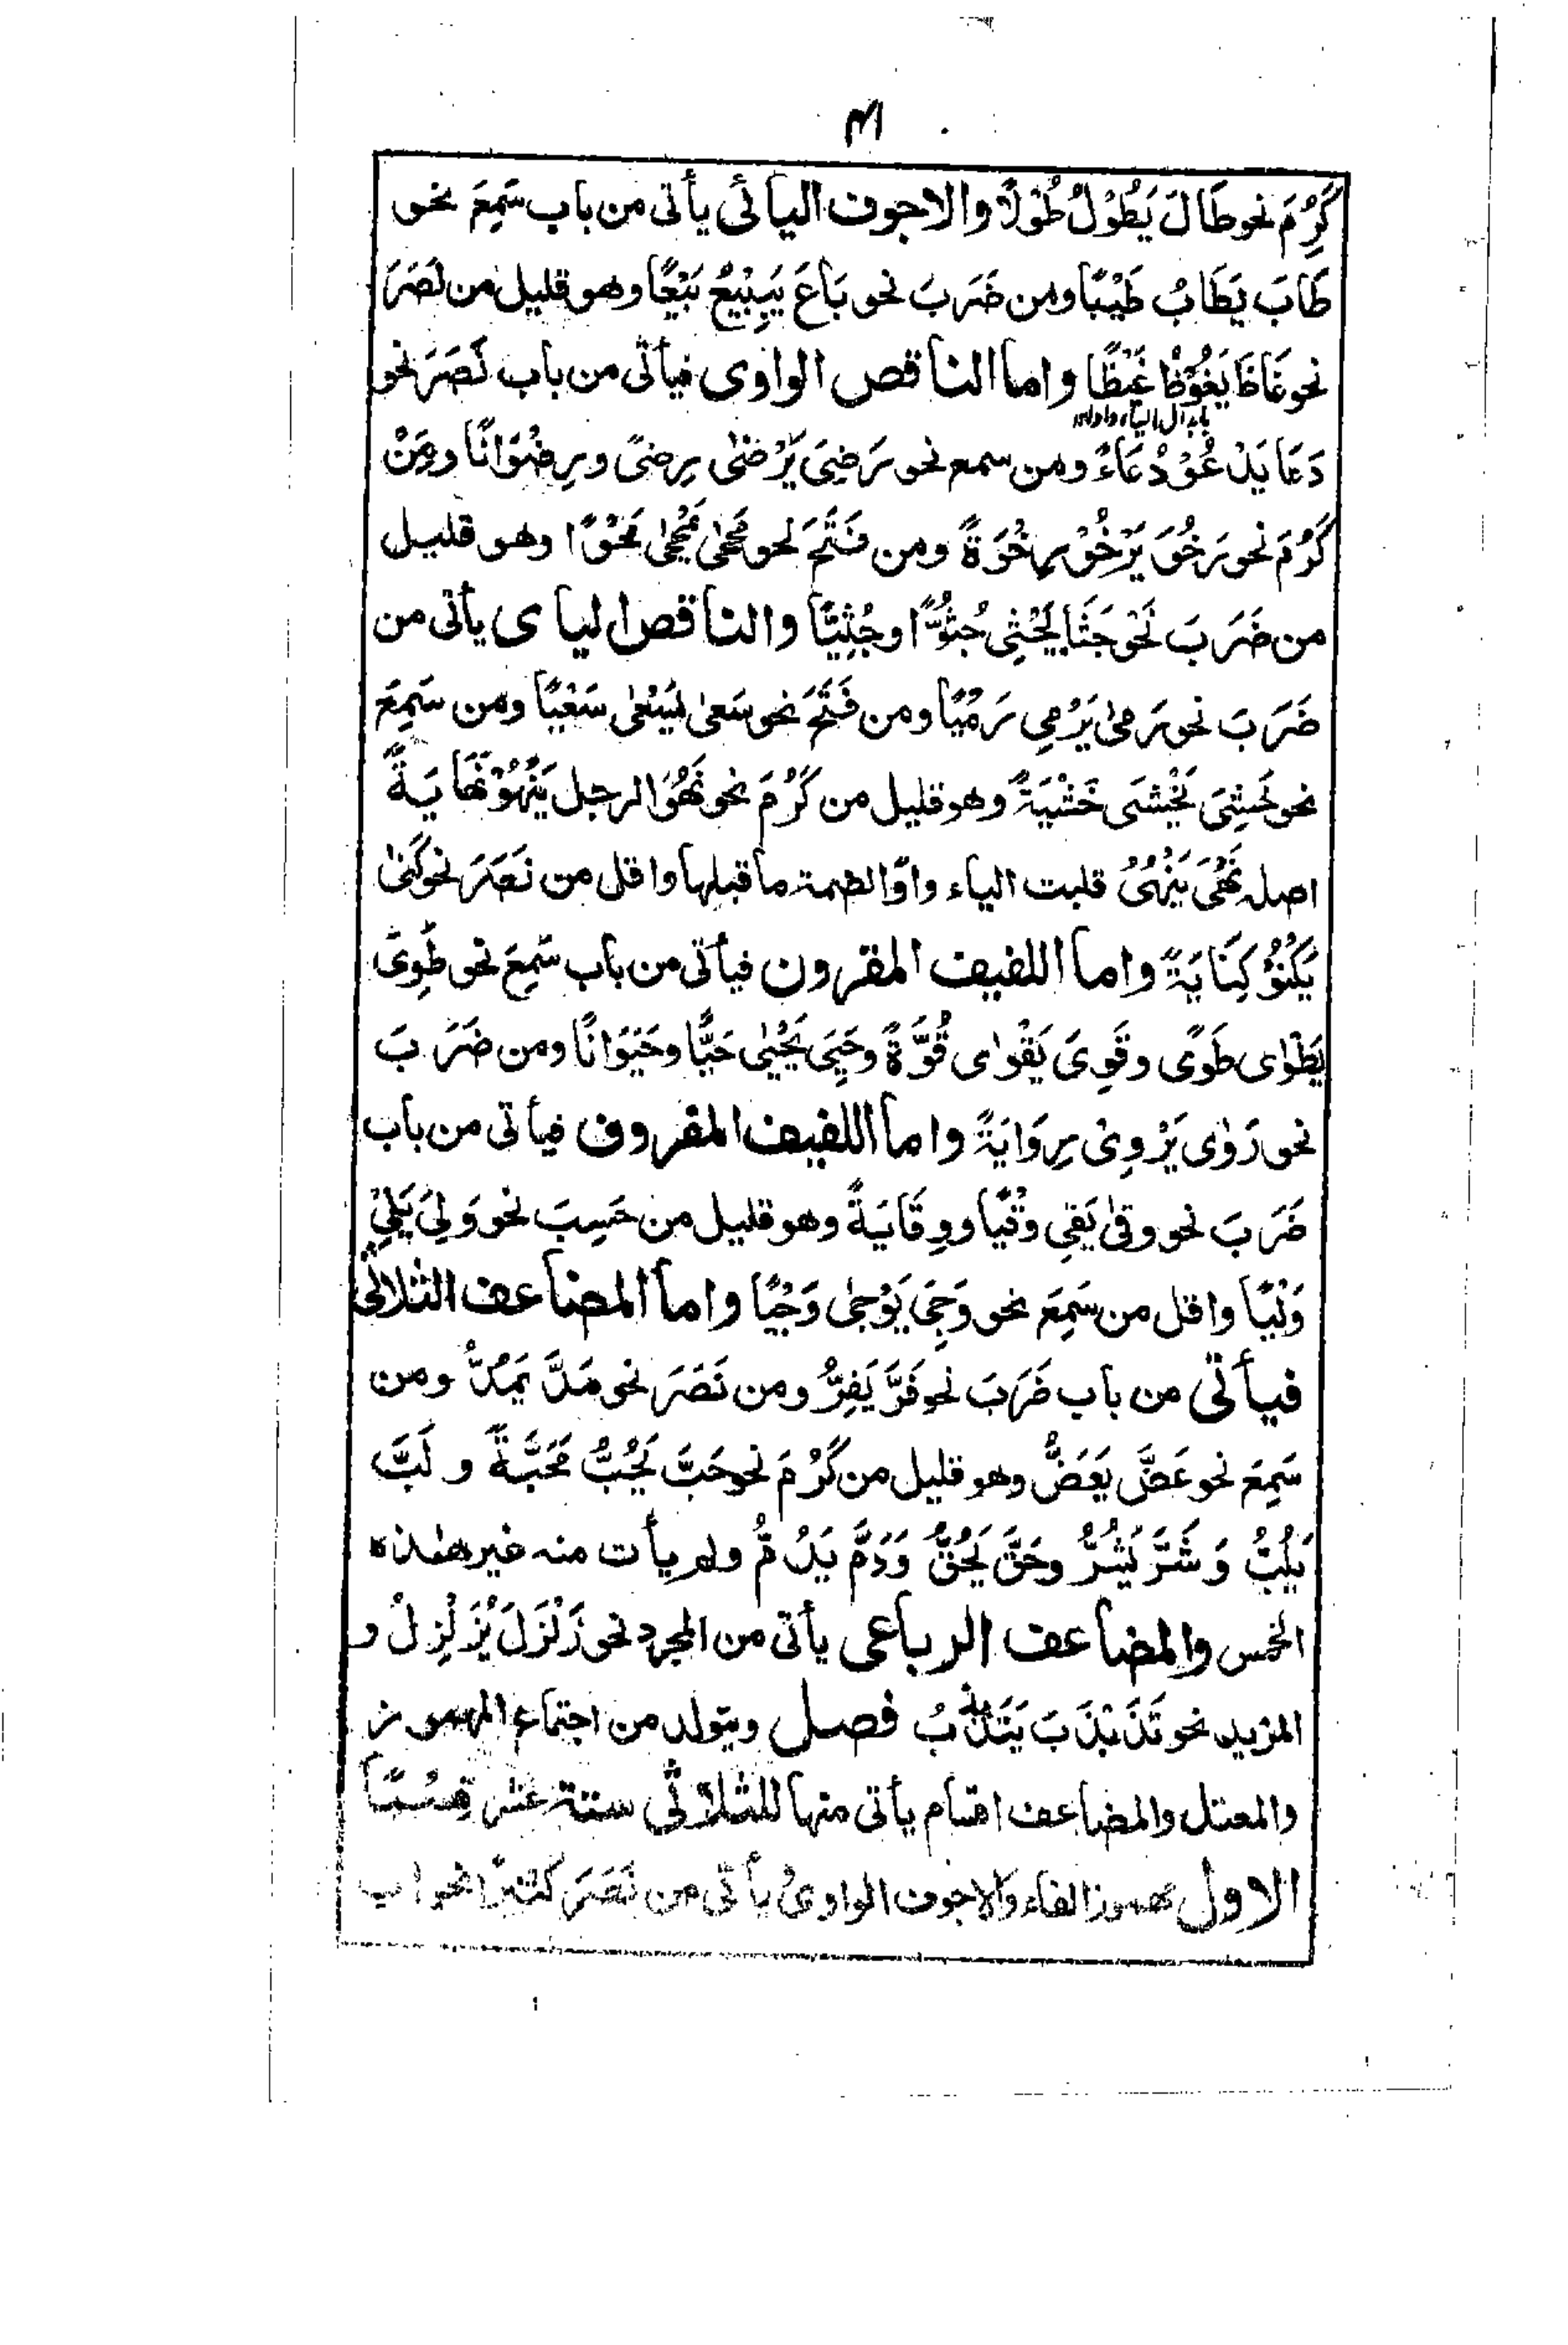 ٣١
كَرُمَ نحو طَالَ يَطُوْلُ طُوْلًا والاجوف اليائى يأتى من باب سَمِعَ نحو
طَابَ يَطَابُ طَيْبًا ومن ضَرَبَ نحو بَاعَ يَبِيْعُ بَيْعًا وهو قليل من نَصَرَ
نحو غَاظَ يَغُوْظُ غَيْظًا واما الناقص الواوى فيأتى من باب نَصَرَ نحو
بابدال الياء واوا
دَعَا يَدْعُوْ دُعَاءً ومن سمع نحو رَضِىَ يَرْضٰى رِضىً ورِضْوَانًا ومِنْ
كَرُمَ نحو رَخُوَ يَرْخُوْ رِخْوَةً ومن فَتَحَ نحو مَحٰى يَمْحٰى مَحْوًا وهو قليل
من ضَرَبَ نَحْوُ جَثَا يَجْثِى جُثُوًّا وجُثِيًّا والناقص اليا ى يأتى من
ضَرَبَ نحو رَمٰى يَرْمِى رَمْيًا ومن فَتَحَ نحو سَعىٰ يَسْعٰى سَعْيًا ومن سَمِعَ
نحو خَشِىَ يَخْشَى خَشْيَةً وهو قليل من كَرُمَ نحو نَهُوَ الرجل يَنْهُوْ نَهَايَةً
اصله نَهُىَ يَنْهُىُ قلبت الياء واوًا لضمة ما قبلها واقل من نَصَرَ نحو كَنٰى
يَكْنُوْ كِنَايَةً واما اللفيف المقرون فيأتى من باب سَمِعَ نحو طَوِىَ
يَطْوٰى طَوًى وقَوِىَ يَقْوٰى قُوَّةً وحَيِىَ يَحْيٰى حَيًّا وحَيَوَانًا ومن ضَرَبَ
نحو رَوٰى يَرْوِىْ رِوَايَةً واما اللفيف المفروق فيأتى من باب
ضَرَبَ نحو وقىٰ يَقِى وَقْيًا ووِقَايَةً وهو قليل من حَسِبَ نحو وَلِىَ يَلِىْ
وَلْيًا واقل من سَمِعَ نحو وَجِىَ يَوْجٰى وَجْيًا واما المضاعف الثلاثى
فيأتى من باب ضَرَبَ نحو فَرَّ يَفِرُّ ومن نَصَرَ نحو مَدَّ يَمُدُّ ومن
سَمِعَ نحو عَضَّ يَعَضُّ وهو قليل من كَرُمَ نحو حَبَّ يَحُبُّ مَحَبَّةً و لَبَّ
يَلُبُّ وَ شَرَّ يَشُرُّ وحَقَّ يَحُقُّ وَدَمَّ يَدُمُّ ولم يأت منه غير هٰذه
الخمس والمضاعف الرباعى يأتى من المجرد نحو زَلْزَلَ يُزَلْزِلُ و
المزيد نحو تَذَبْذَبَ يَتَذَبْذَبُ فصل ويتولد من اجتماع المهموز
والمعتل والمضاعف اقسام يأتى منها للثلاثى ستة عشر قِسْمًا
الاول مهموز الفاء والاجوف الواوىُ يأتى من نَصَرَ كثيرًا نحو اب